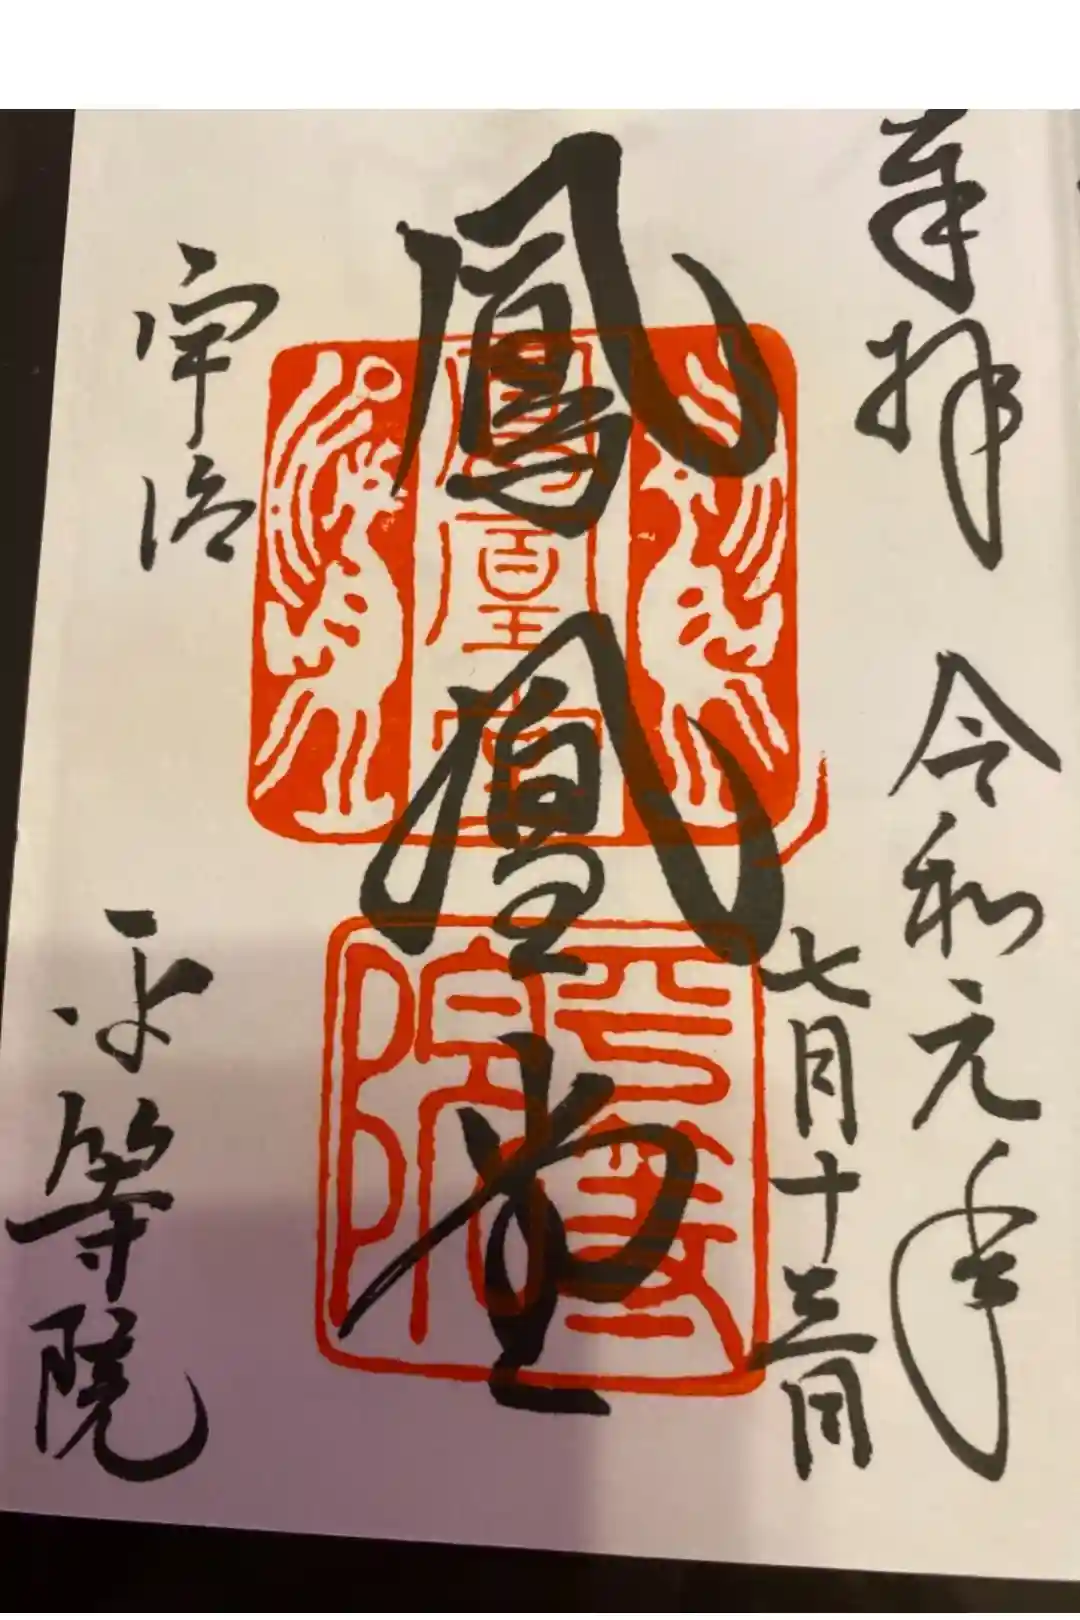 奉拝 令和元年
七月十三日
鳳凰堂
宇治 平等院
鳳凰堂
平等院